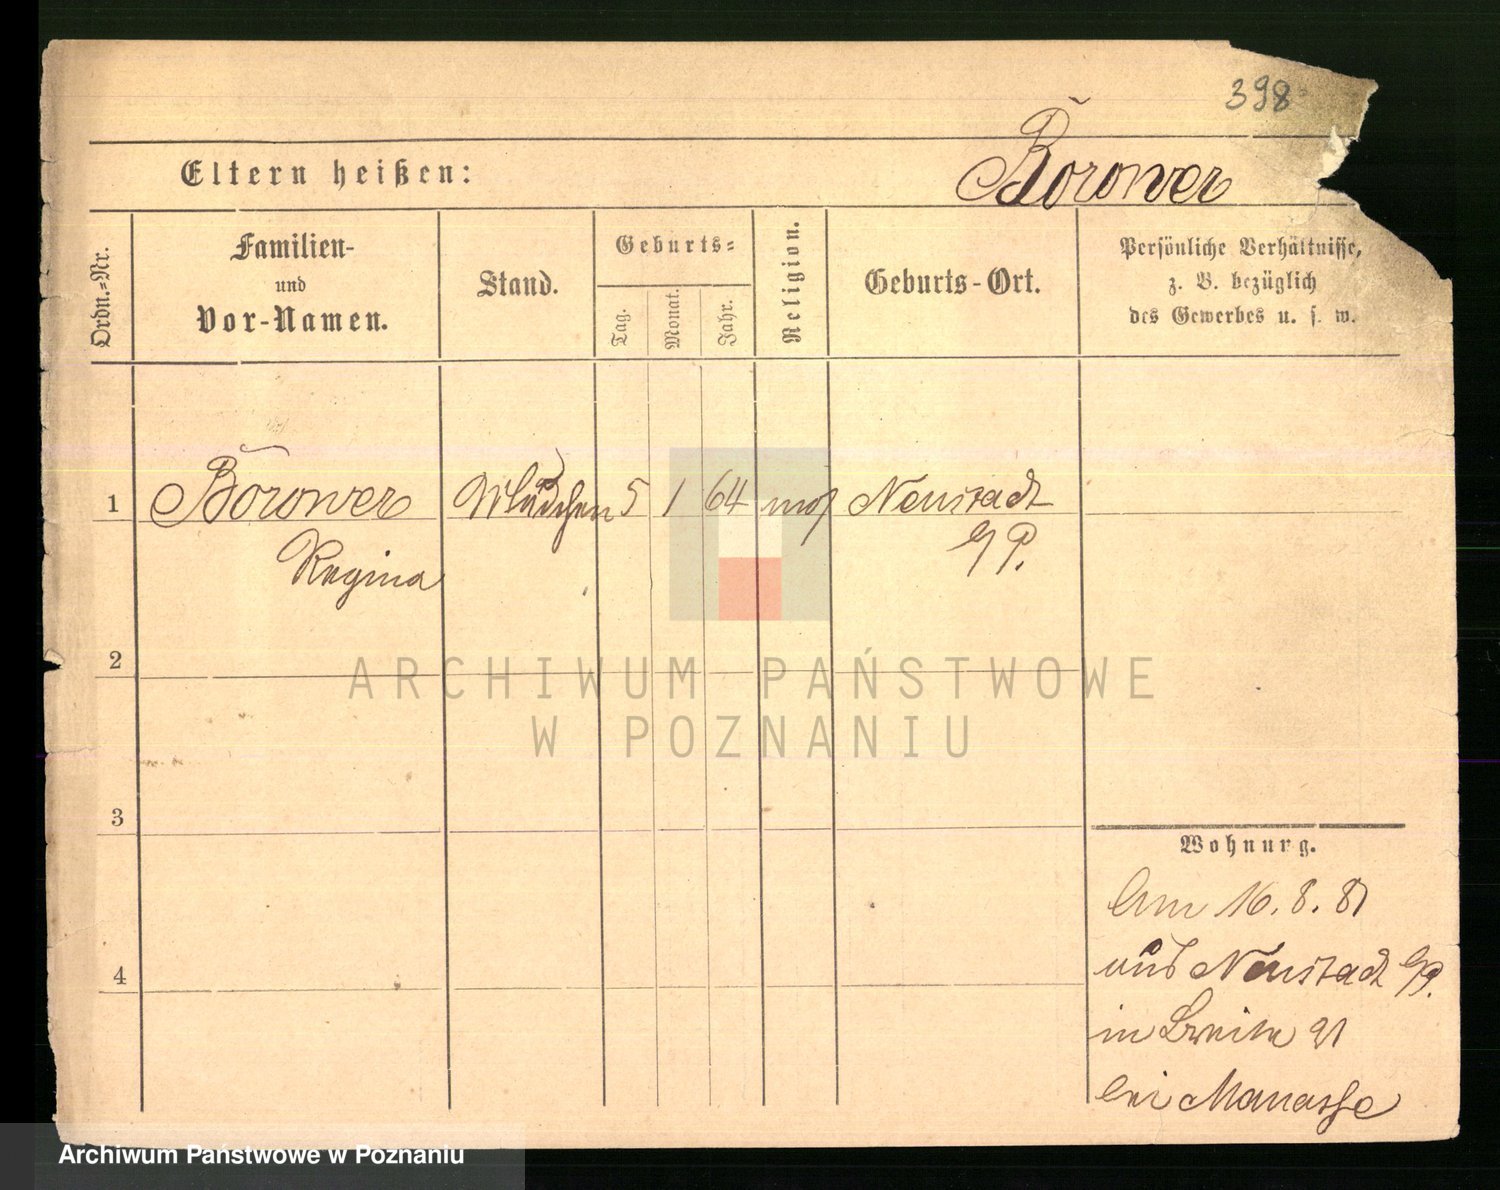 398
Borower
Eltern heißen:
Ordn.-Nr.
Familien-
und
Vor-Namen.
Stand.
Geburts-
Tag.
Monat.
Jahr.
Religion.
Geburts-Ort.
Persönliche Verhältnisse,
z. B. bezüglich
des Gewerbes u. s. w.
1
Borower
Regina
Mädchen
5
1
64
mos
Neustadt
2
3
4
Wohnung.
Am 16. 8. 81
aus Neustadt
in Breite 21
bei Manasse
ARCHIWUM PAŃSTWOWE
W POZNANIU
Archiwum Państwowe w Poznaniu